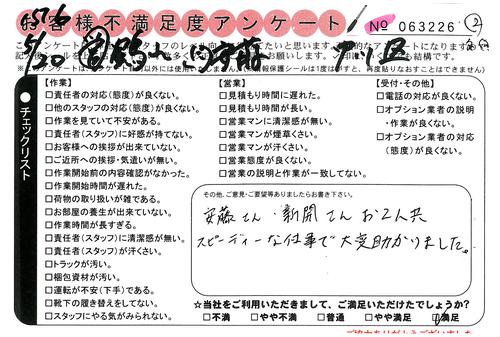 お客様不満足度アンケート
No 063226 ②
※このアンケート
【作業】
□責任者の対応(態度)が良くない。
□他のスタッフの対応(態度)が良くない。
□作業を見ていて不安がある。
□責任者(スタッフ)に好感が持てない。
□お客様への挨拶が出来ていない。
□ご近所への挨拶・気遣いが無い。
□作業開始前の内容確認がなかった。
□作業開始時間が遅れた。
□荷物の取り扱いが雑である。
□お部屋の養生が出来ていない。
□作業時間が長すぎる。
□責任者(スタッフ)に清潔感が無い。
□責任者(スタッフ)が汗くさい。
□トラックが汚い。
□梱包資材が汚い。
□運転が不安(下手)である。
□靴下の履き替えをしてない。
□スタッフにやる気がみられない。
【営業】
□見積もり時間に遅れた。
□見積もり時間が長い。
□営業マンに清潔感が無い。
□営業マンが煙草くさい。
□営業マンが汗くさい。
□営業態度が良くない。
□営業の説明と作業が一致してない。
【受付・その他】
□電話の対応が良くない。
□オプション業者の説明
・作業が良くない。
□オプション業者の対応
(態度)が良くない。
●チェックリスト
その他、ご意見・ご要望等ありましたらお書き下さい。
安藤さん・新開さんお2人共
スピーディーな仕事で大変助かりました。
☆当社をご利用いただきまして、ご満足いただけたでしょうか?
□不満 □やや不満 □普通 □やや満足 □満足
ご協力ありがとうございました